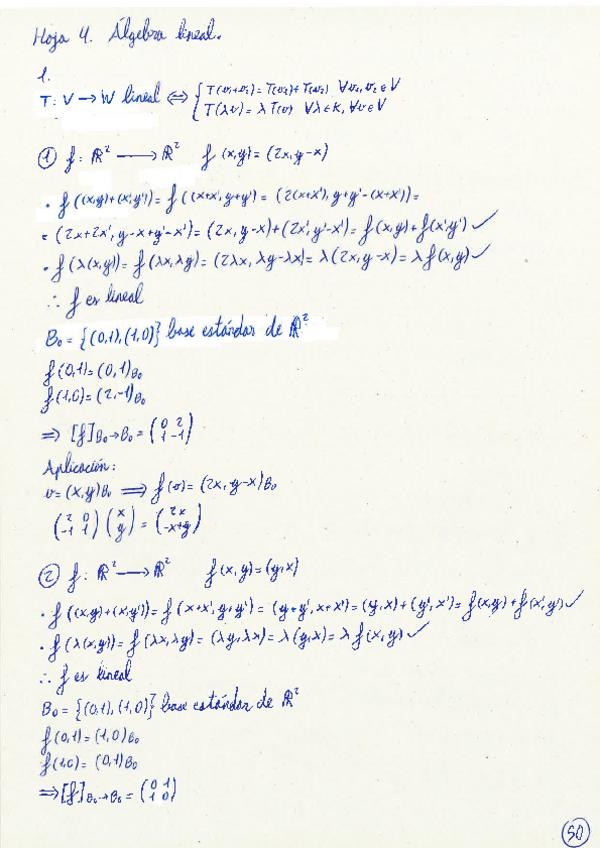 Hoja 4. Álgebra lineal.
1.
T: V → W lineal ⟺ { T(v₁+v₂) = T(v₁)+T(v₂) ∀v₁,v₂ ∈ V
T(λv) = λT(v) ∀λ∈K, ∀v∈V
① f: ℝ² → ℝ² f(x,y) = (2x, y-x)
• f((x,y)+(x',y')) = f((x+x', y+y') = (2(x+x'), y+y'-(x+x')) =
= (2x+2x', y-x+y'-x') = (2x, y-x)+(2x', y'-x') = f(x,y)+f(x',y') ✓
• f(λ(x,y)) = f(λx, λy) = (2λx, λy-λx) = λ(2x, y-x) = λf(x,y) ✓
∴ f es lineal
B₀ = {(0,1), (1,0)} base estándar de ℝ²
f(0,1) = (0,1)B₀
f(1,0) = (2,-1)B₀
⟹ [f]B₀→B₀ = (0 2
1 -1)
Aplicación:
v = (x,y)B₀ ⟹ f(v) = (2x, y-x)B₀
(2 0 (x = (2x
-1 1) y) -x+y)
② f: ℝ² → ℝ² f(x,y) = (y,x)
• f((x,y)+(x',y')) = f(x+x', y+y') = (y+y', x+x') = (y,x)+(y',x') = f(x,y)+f(x',y') ✓
• f(λ(x,y)) = f(λx, λy) = (λy, λx) = λ(y,x) = λf(x,y) ✓
∴ f es lineal
B₀ = {(0,1), (1,0)} base estándar de ℝ²
f(0,1) = (1,0)B₀
f(1,0) = (0,1)B₀
⟹ [f]B₀→B₀ = (0 1
1 0)
50